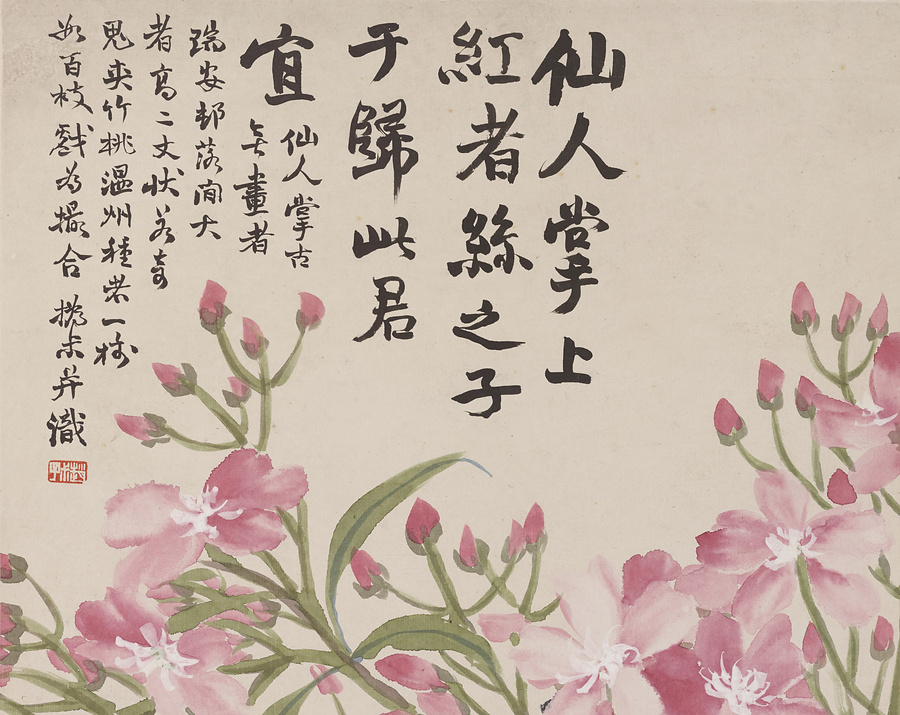 仙人掌上
紅者絲之子
于歸此君
宜
仙人掌古
無畫者
瑞安邨落間大
者高二丈狀若奇
鬼夾竹桃溫州種者一樹
數百枝戲為撮合 撝叔并識